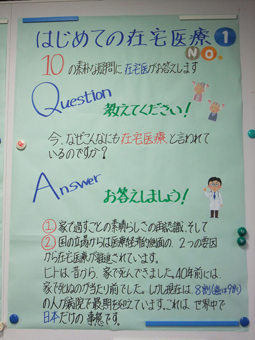 はじめての在宅医療 1
NO.
10の素朴な疑問に在宅医がお答えします
Question
教えてください!
今、なぜこんなにも在宅医療と言われて
いるのですか?
Answer
お答えしましょう!
① 家で過ごすことの素晴らしさの再認識、そして
② 国の立場からは医療経済的側面の、2つの要因
から在宅医療が推進されています。
ヒトは昔から、家で死んできました。40年前には
家で死ぬのが当たり前でした。しかし現在は8割(は9割)
の人が病院で最期を迎えています。これは、世界中で
日本だけの事態です。